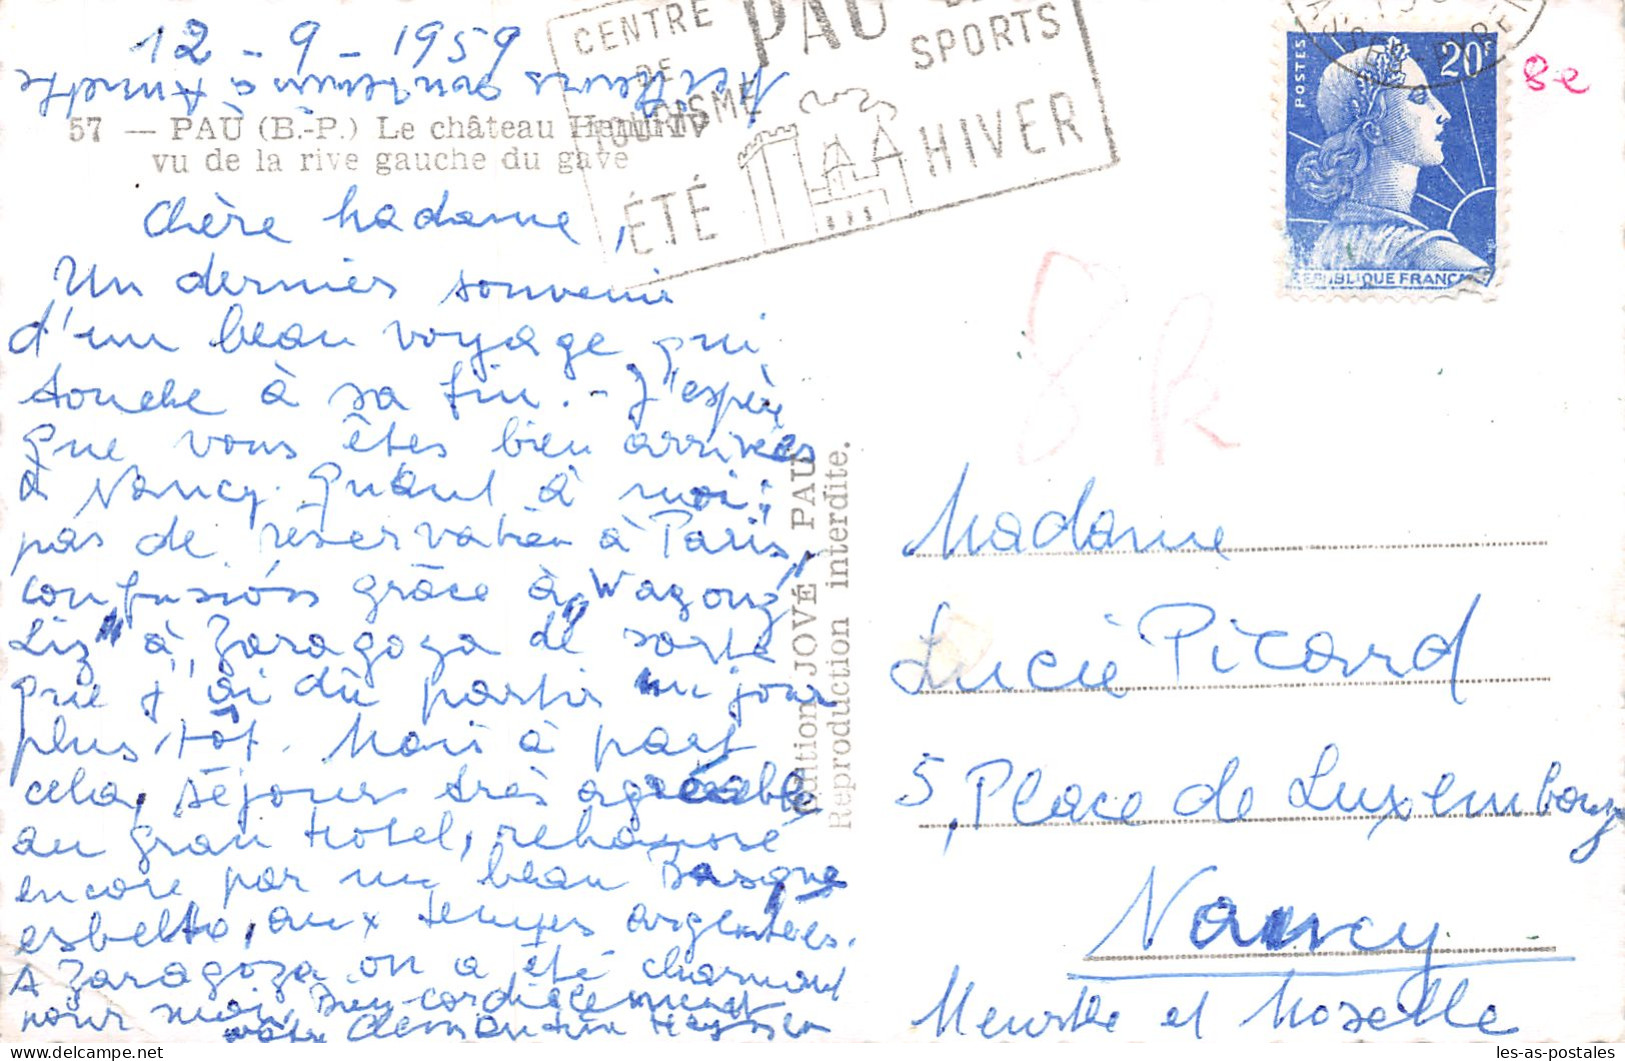 12 - 9 - 1959
Meilleurs souvenirs à
57 — PAU (B.-P.) Le château Henri IV
vu de la rive gauche du gave
CENTRE
DE
TOURISME
PAU
SPORTS
ÉTÉ
HIVER
POSTES
20F
REPUBLIQUE FRANÇAISE
8e
8k
Chère Madame,
Un dernier souvenir
d'un beau voyage qui
touche à sa fin. - J'espère
que vous êtes bien arrivées
à Nancy. Quant à moi:
pas de réservation à Paris,
confusión grâce à "Wagons
Liz" à Zaragoza de sorte
que j'ai dû partir un jour
plus tôt. Mais à part
cela, séjour très agréable
au Gran Hotel, rehaussé
encore par un beau Basque
esbelto, aux tempes argentées.
A Zaragoza on a été charmant
pour moi. Bien cordialement
votre
Edition JOVÉ, PAU
Reproduction interdite.
Madame
Lucie Picard
5, Place de Luxembourg
Nancy
Meurthe et Moselle
les-as-postales
delcampe.net